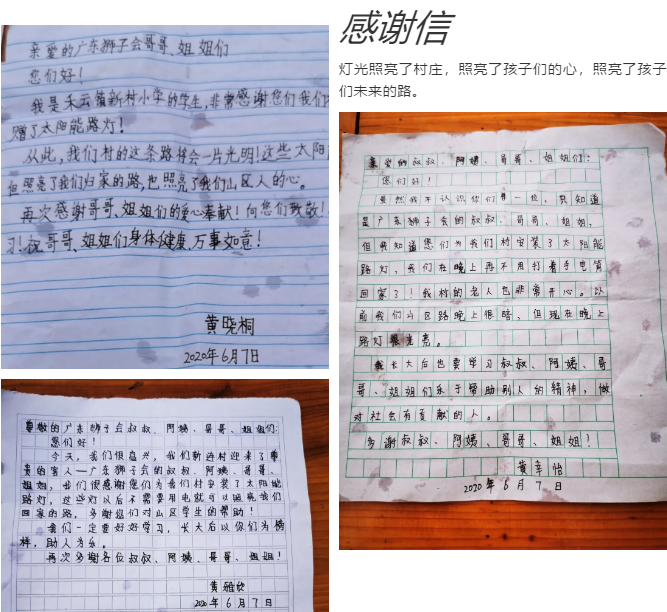 亲爱的广东狮子会哥哥、姐姐们
您们好！
我是禾云镇新村小学的学生,非常感谢您们我们村
赠了太阳能路灯！
从此,我们村的这条路将会一片光明！这些太阳
但照亮了我们归家的路,也照亮了我们山区人的心。
再次感谢哥哥、姐姐们的爱心奉献！向您们致敬！
习！祝哥哥、姐姐们身体健康、万事如意！
黄晓桐
2020年6月7日
感谢信
灯光照亮了村庄，照亮了孩子们的心，照亮了孩子
们未来的路。
亲爱的叔叔、阿姨、哥哥、姐姐们：
您们好！
虽然我不认识你们每一位，只知道
是广东狮子会的叔叔、哥哥、姐姐，
但我知道您们为我们村安装了太阳能
路灯，我们在晚上再不用打着手电筒
回家了！我村的老人也非常开心。以
前我们山区路晚上很暗，但现在晚上
路灯很光亮。
我长大后也要学习叔叔、阿姨、哥
哥、姐姐们乐于帮助别人的精神，做
对社会有贡献的人。
多谢叔叔、阿姨、哥哥、姐姐！
黄幸怡
2020年6月7日
尊敬的广东狮子会叔叔、阿姨、哥哥、姐姐们:
您们好！
今天，我们很高兴，我们新连村迎来了尊
贵的客人—广东狮子会的叔叔、阿姨、哥哥、
姐姐，我们很感谢您们为我们村安装了太阳能
路灯，这些灯以后不需要用电就可以照亮我们
回家的路，多谢您们对山区学生的帮助！
我们一定要好好学习，长大后以你们为榜
样，助人为乐。
再次多谢各位叔叔、阿姨、哥哥、姐姐！
黄雅欣
2020年6月7日